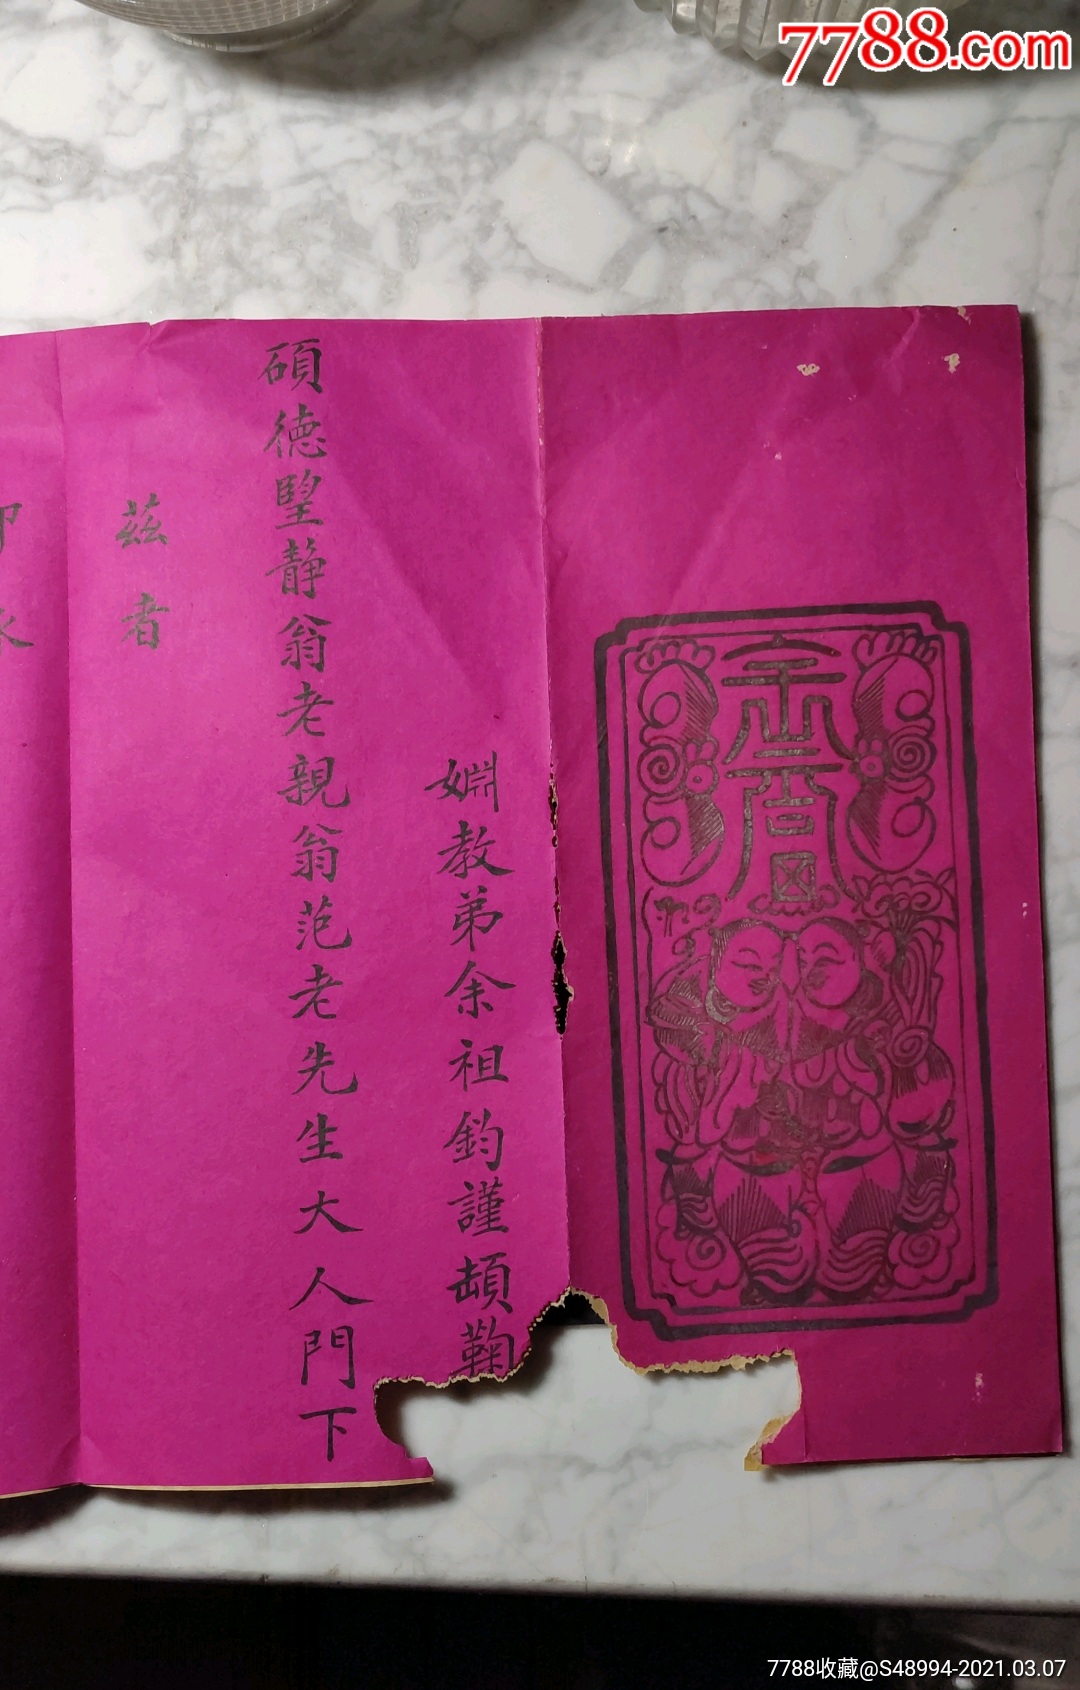 7788.com
婣教弟余祖鈞謹頓鞠
碩德朢静翁老親翁范老先生大人門下
茲者
7788收藏@S48994-2021.03.07